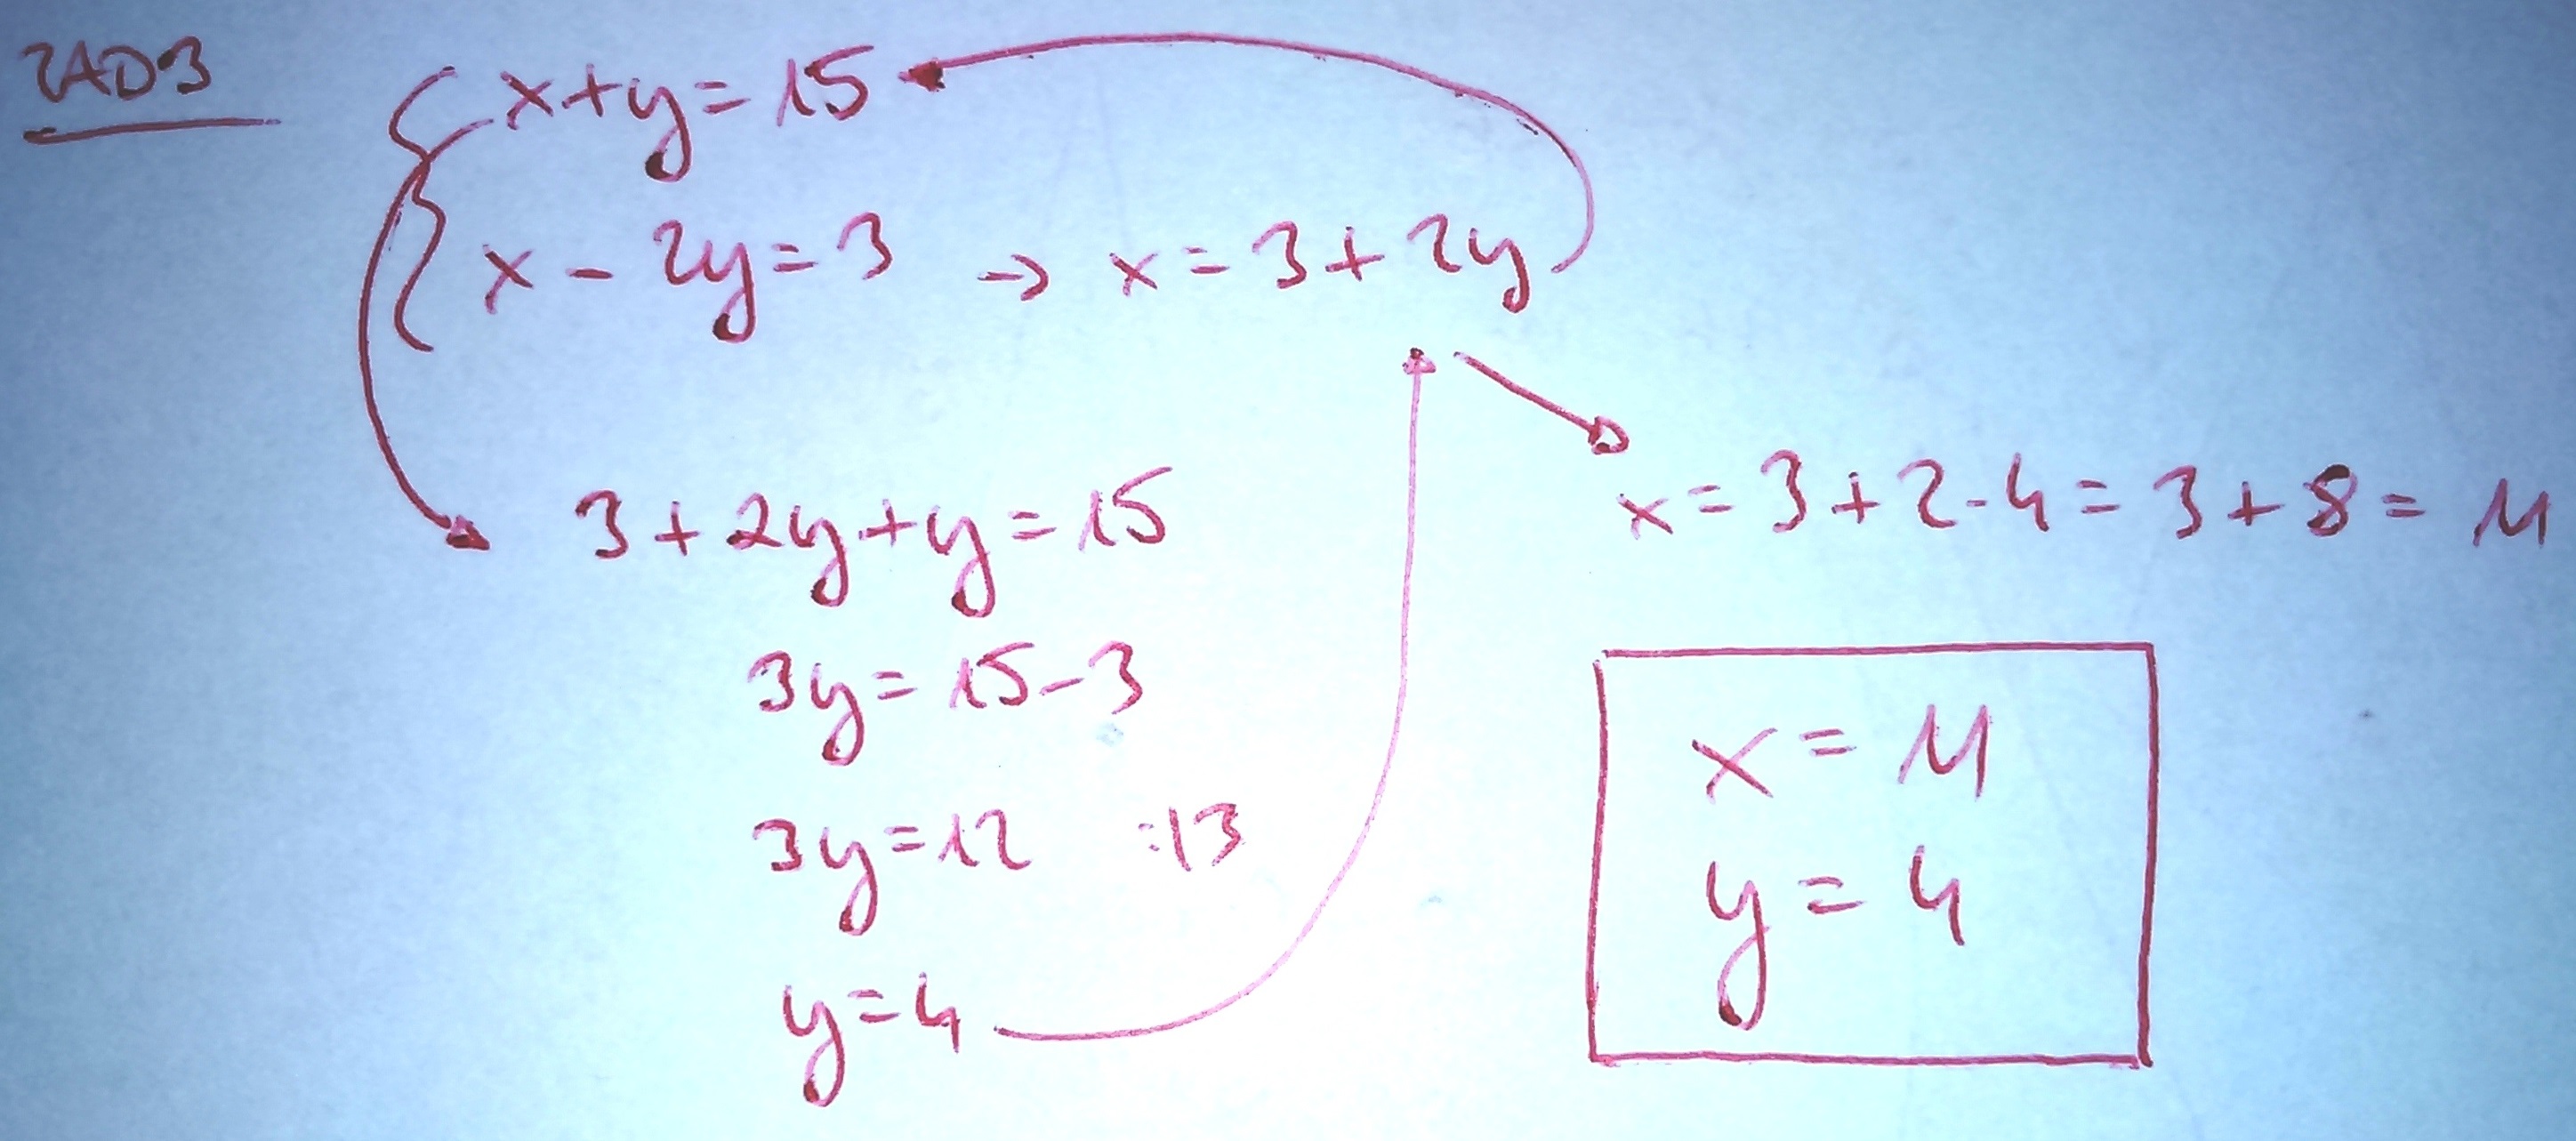 ZAD3
x+y=15
x-2y=3 → x=3+2y
3+2y+y=15
3y=15-3
3y=12 :|3
y=4
x=3+2·4=3+8=11
x=11
y=4